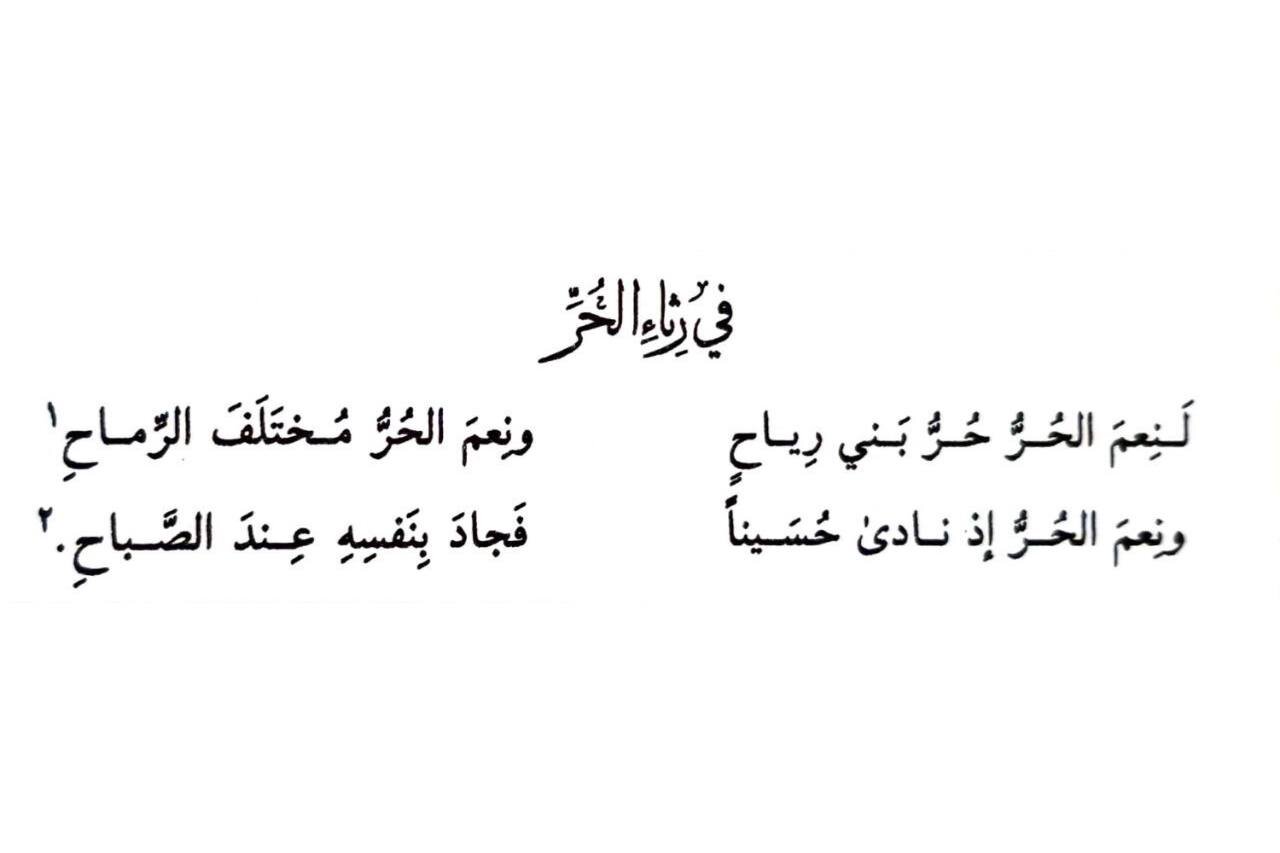 في رِثاءِ الحُرِّ
لَـنِعمَ الحُـرُّ حُـرُّ بَـني رِيـاحٍ ونِعمَ الحُرُّ مُـختَلَفَ الرِّمـاحِ١
ونِعمَ الحُـرُّ إذ نـادىٰ حُسَـيناً فَجادَ بِنَفسِهِ عِـندَ الصَّـباحِ.٢